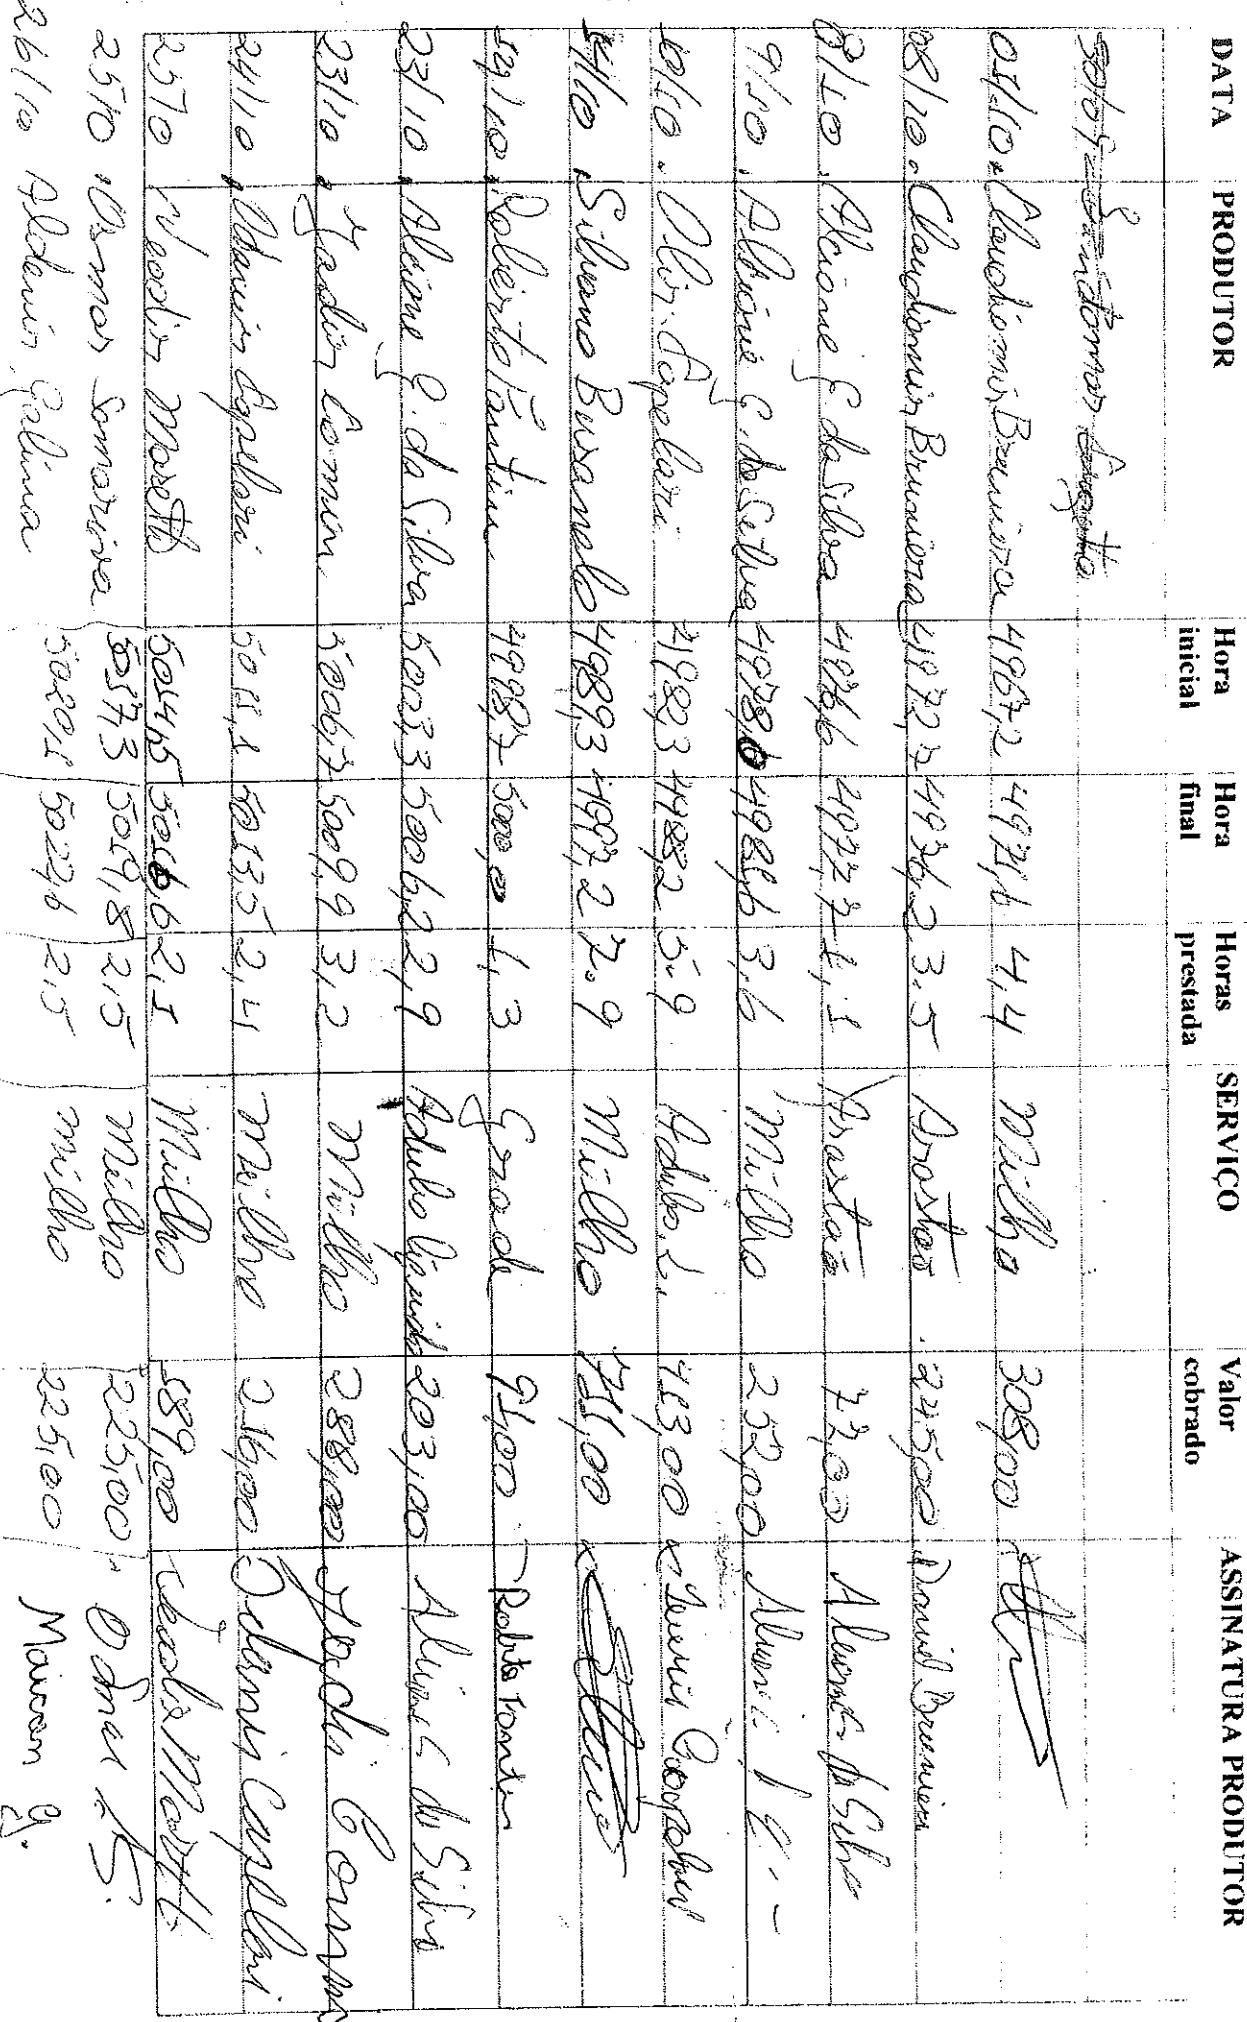 DATA PRODUTOR Hora inicial Hora final Horas prestada SERVIÇO Valor cobrado ASSINATURA PRODUTOR
30/09
05/10. Claudiomir Bruniera 4967,2 4971,6 4,4 Milho 308,00
08/10. Claudiomir Bruniera 4972,7 4976,2 3.5 Arastão 245,00 David Bruniera
8/10. Alcione G da Silva 4976,6 4977,7 1,1 Arastão 77,00 Alcione da Silva
9/10. Alcione G. da Silva 4978,0 4981,6 3,6 Milho 252,00
10/10. Olir Capelari 4982,3 4988,2 5.9 Adubo L. 413,00
14/10. Silvano Busanelo 4989,3 4997,2 7.9 Milho 711,00
19/10. Roberto Fantin 4998,7 5000,0 1,3 Grade 91,00 Roberto Fontin
23/10. Alcione G. da Silva 5003,3 5006,2 2,9 Adubo liquido 203,00 Alcione G da Silva
23/10. Jadir Comin 5006,7 5009,9 3,2 Milho 288,00 Jadir Comin
24/10. Idanir Capelari 5011,1 5013,5 2,4 Milho 216,00 Idanir Capellari
25/10 Neodir Maretto 5014,5 5016,6 2,1 Milho 189,00
25/10 Osmar Somariva 5017,3 5019,8 2,5 Milho 225,00 Osmar S.
26/10 Aldenir Galina 5020,1 5022,6 2,5 milho 225,00 Maicon G.